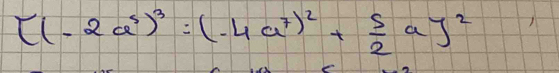 [(-2a⁵)³ : (-4a⁷)² + 5/2 a]²